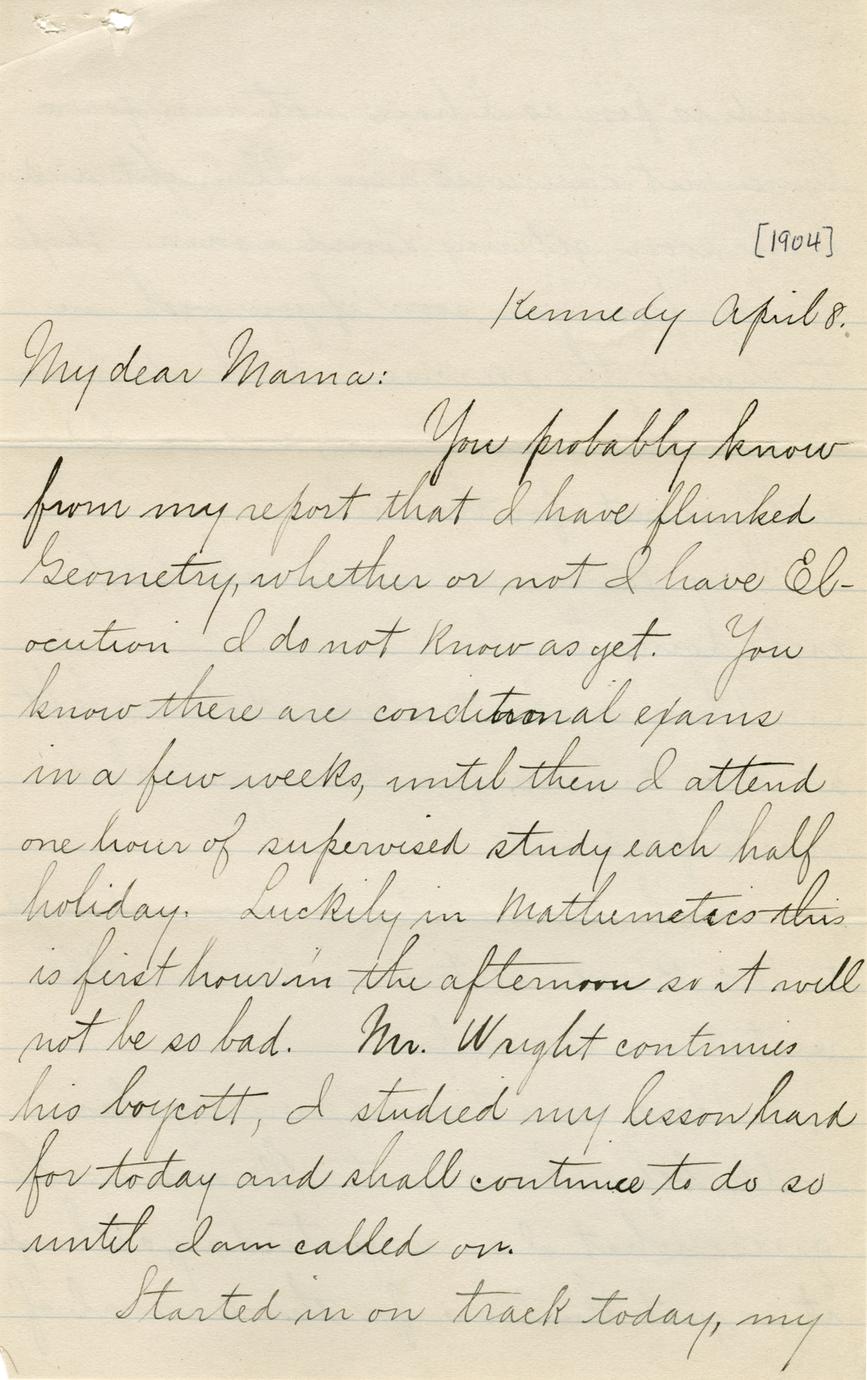 [1904]
Kennedy April 8.
My dear Mama:
You probably know
from my report that I have flunked
Geometry, whether or not I have El-
ocution I do not know as yet. You
know there are conditional exams
in a few weeks, until then I attend
one hour of supervised study each half
holiday. Luckily in Mathemetics this
is first hour in the afternoon so it will
not be so bad. Mr. Wright continues
his boycott, I studied my lesson hard
for today and shall continue to do so
until I am called on.
Started in on track today, my